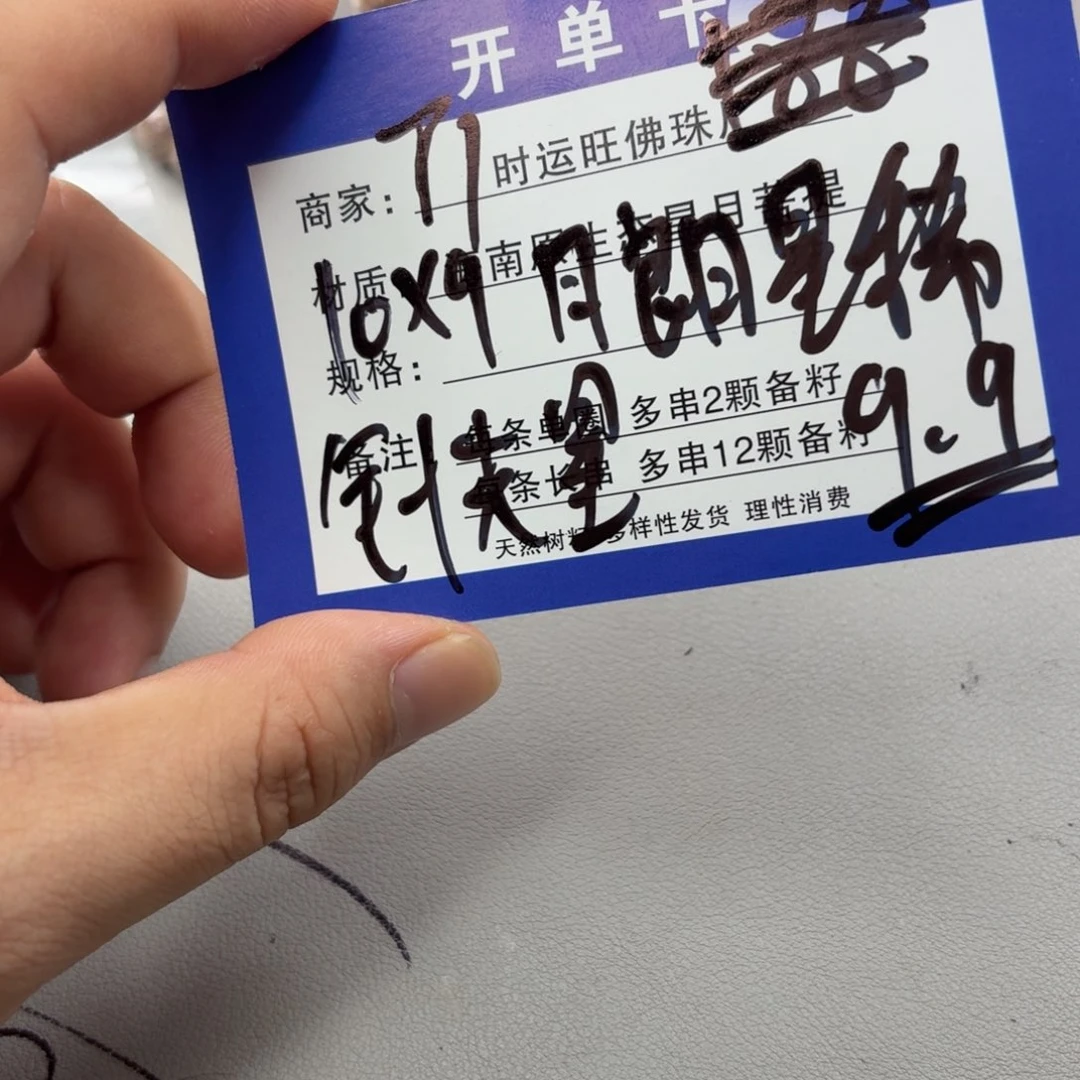 开单卡
71
商家：时运旺佛珠
材质 南原生态星月菩提
10×9 月朗星稀
规格：
备注 每条单圈 多串2颗备籽
9.9
每条长串 多串12颗备籽
天然树籽 多样性发货 理性消费